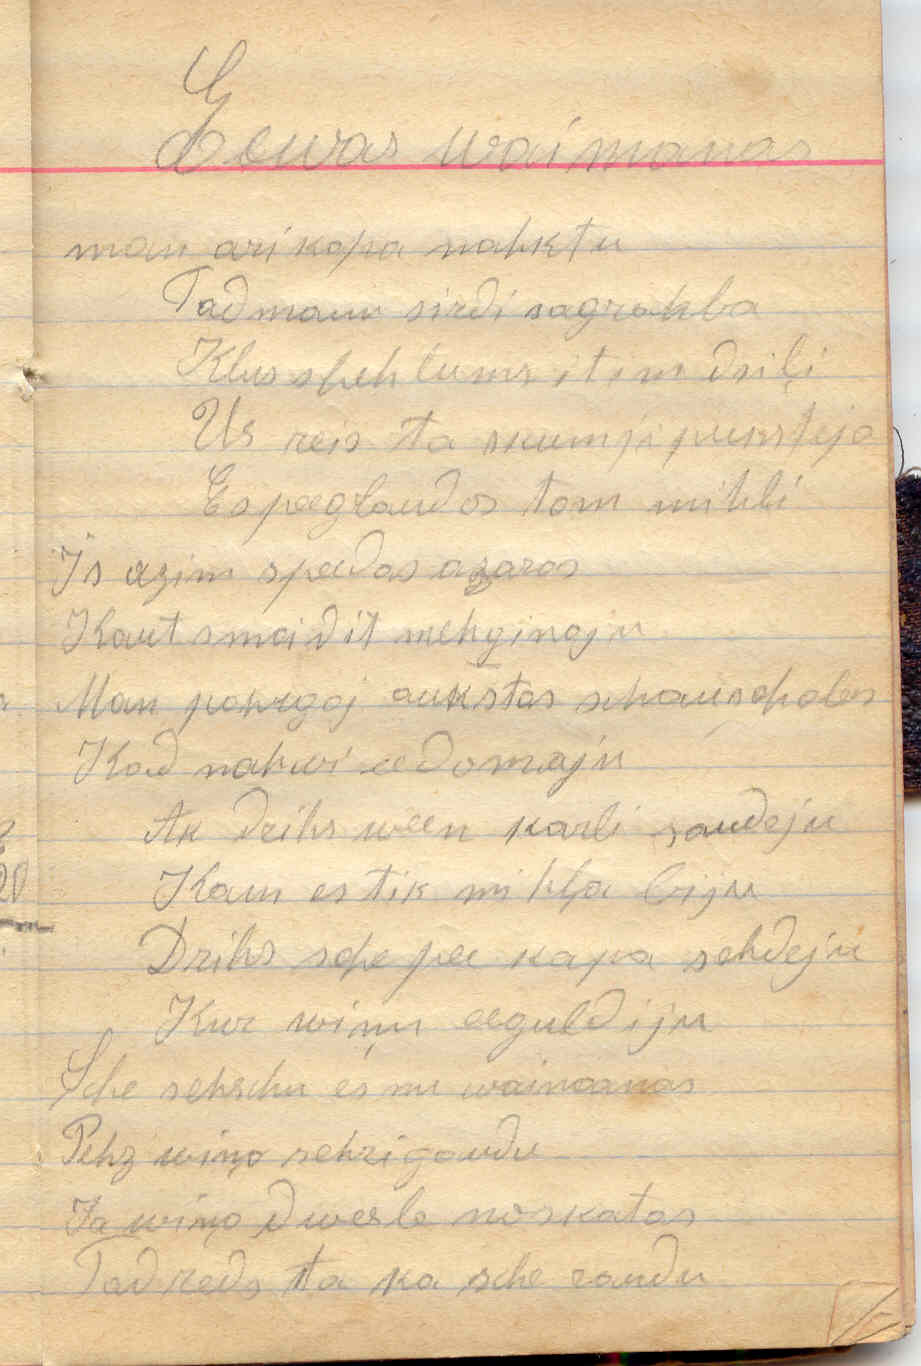 Eewas waimanas
man ari kapa nahktu
Tad manu sirdi sagrahba
Klus spehlums itin dsiļi
Us reis ta skumji
Es peeglaudos tam mihļi
Is azim speedas azaras
Kaut smaidit mehginaju
Man pahrgāj aukstas schauschalas
Kad nahwi eedomaju
Ak drihs ween karli saudeju
Kam es tik mihļa biju
Drihs sche pee kapa sehdeju
Kur wiņu eeguldiju
Sche sehschu es nu waimanas
Pehz wiņo sehri gaudu
Ja wiņo dwesle noskatas
Tad reds ta ka sche raudu